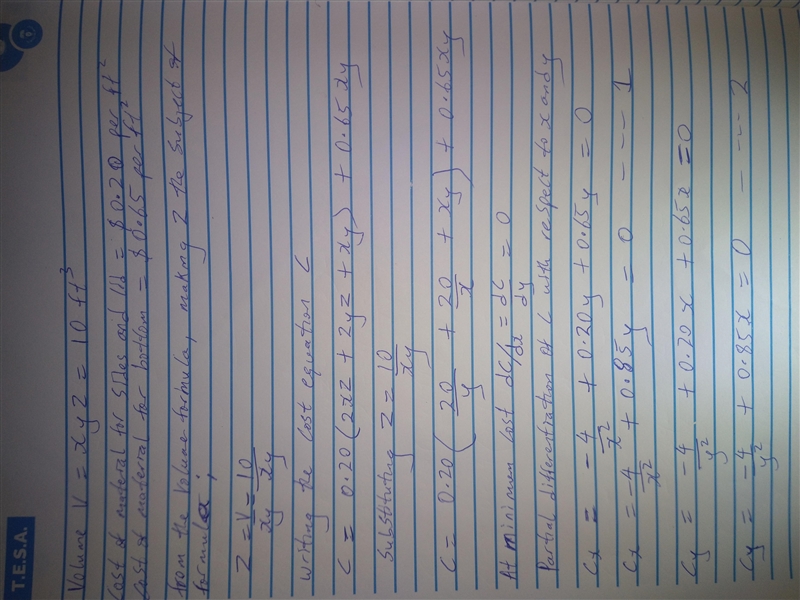 T.E.S.A.
Volume V = xyz = 10 ft³
Cost of material for sides and lid = $0.20 per ft²
Cost of material for bottom = $0.65 per ft²
from the Volume formula, making z the subject of
formula;
z = V/xy = 10/xy
Writing the cost equation C
C = 0.20(2xz + 2yz + xy) + 0.65xy
Substituting z = 10/xy
C = 0.20(20/y + 20/x + xy) + 0.65xy
At minimum cost dC/dx = dC/dy = 0
Partial differentiation of C with respect to x and y
Cx = -4/x² + 0.20y + 0.65y = 0
Cx = -4/x² + 0.85y = 0 - - - 1
Cy = -4/y² + 0.20x + 0.65x = 0
Cy = -4/y² + 0.85x = 0 - - - 2